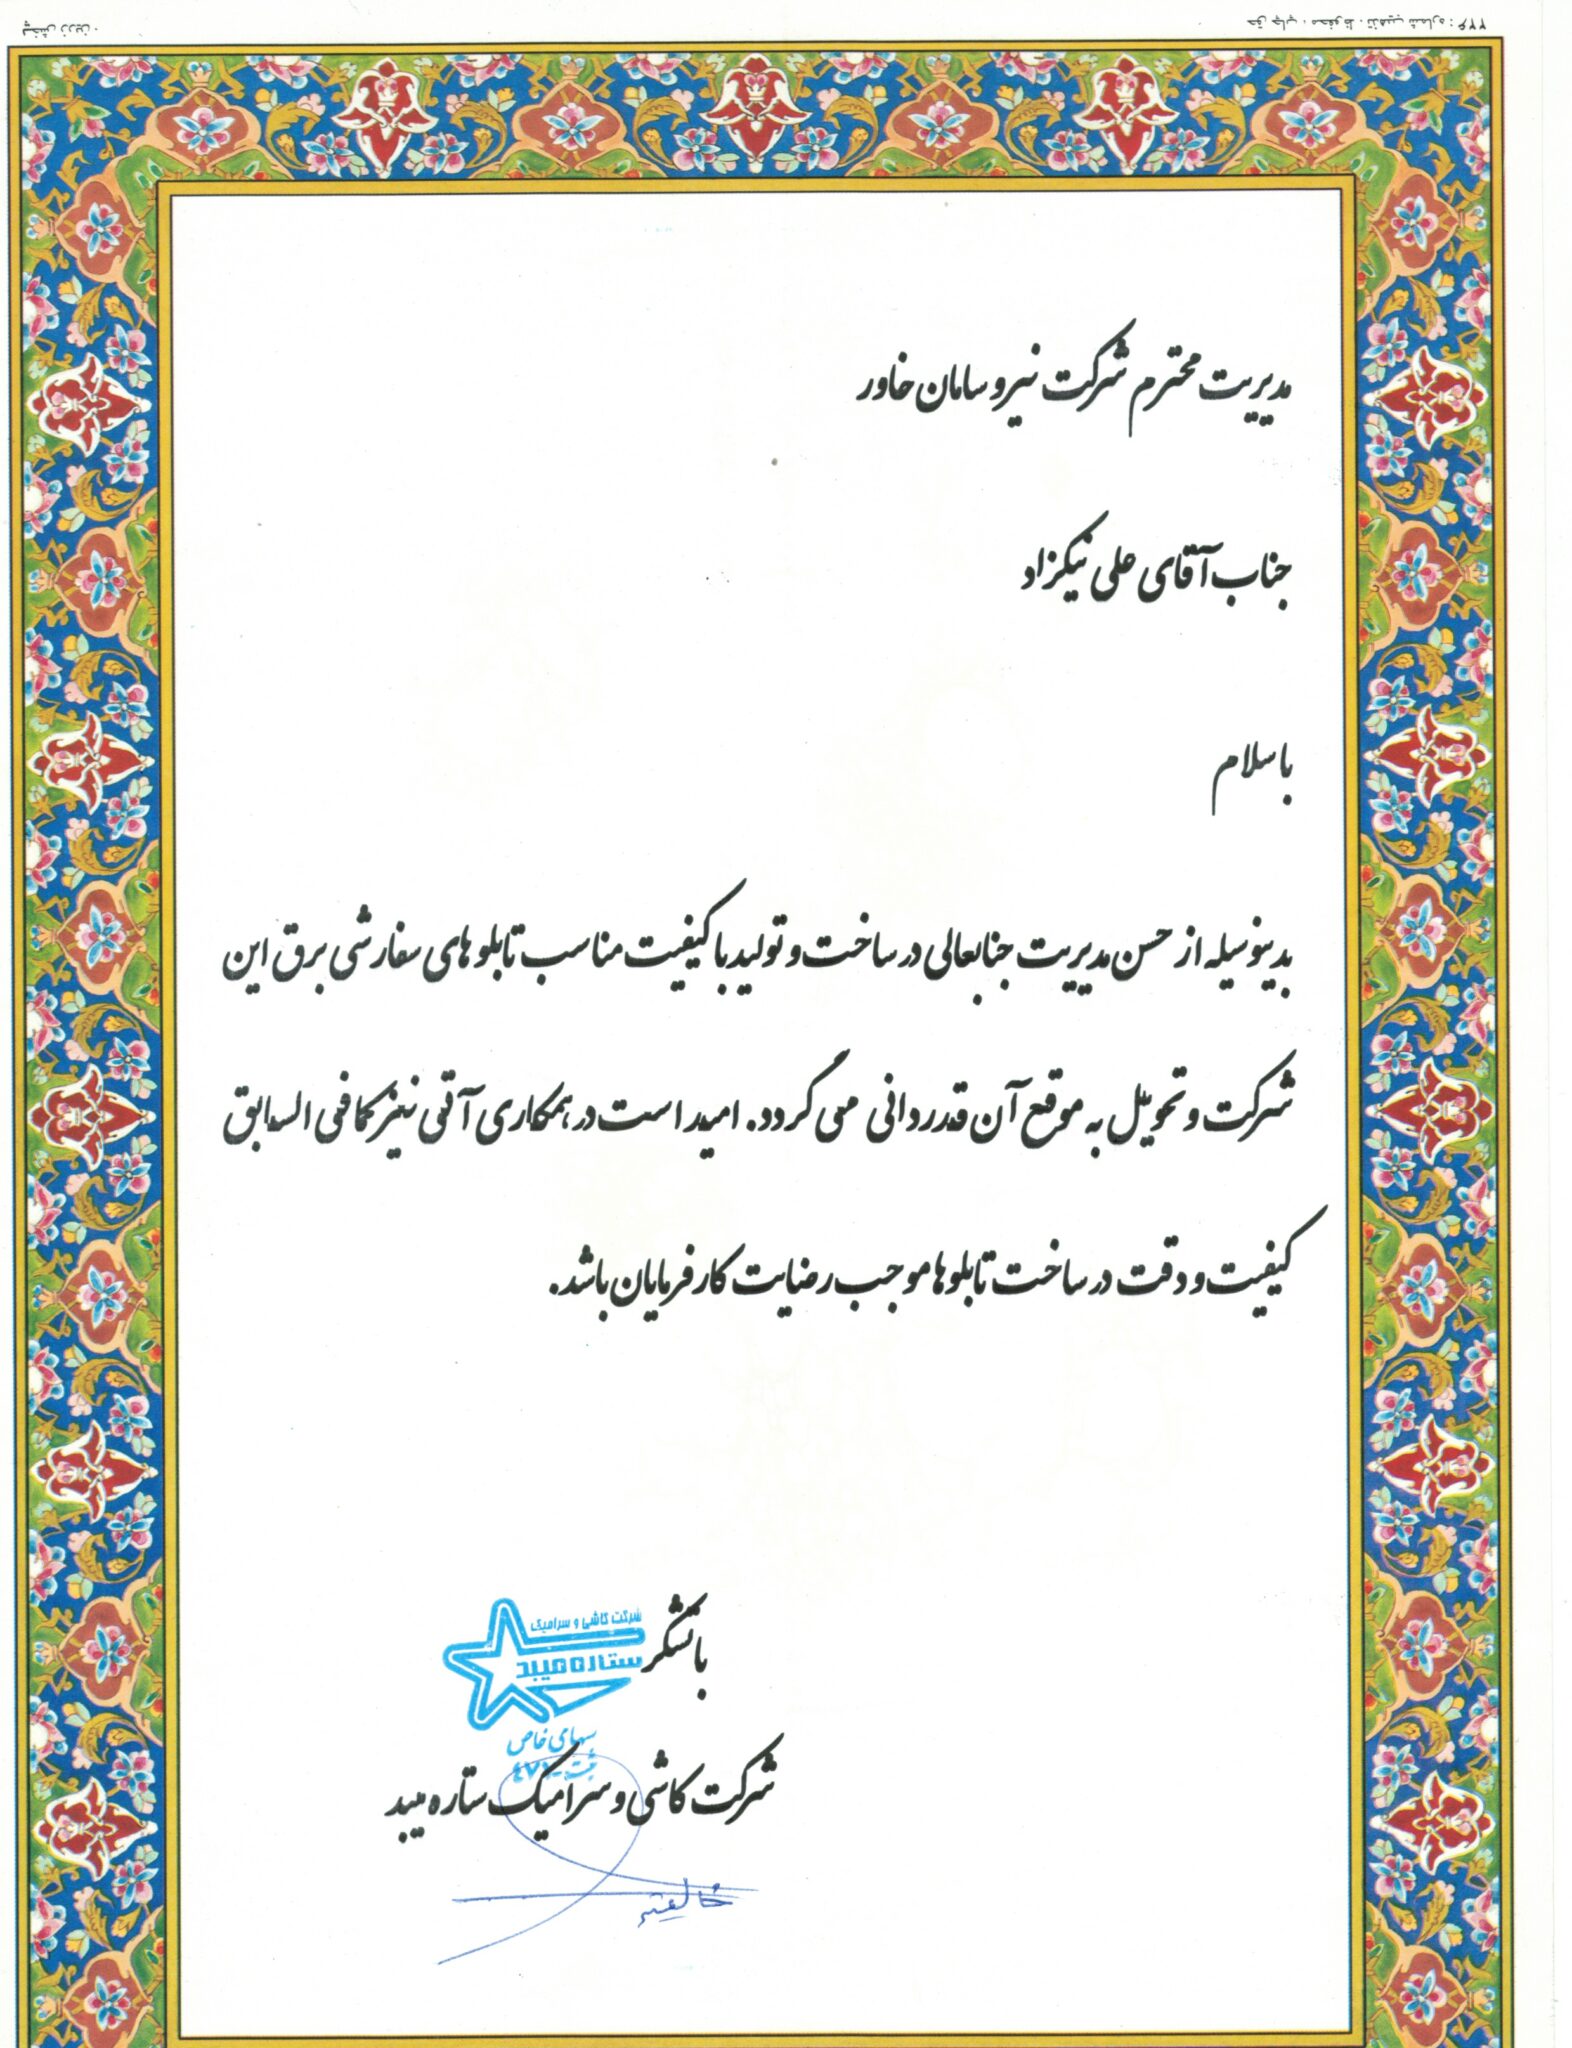 مدیریت محترم شرکت نیرو سامان خاور
جناب آقای علی نیکزاد
با سلام
بدینوسیله از حسن مدیریت جنابعالی در ساخت و تولید با کیفیت مناسب تابلوهای سفارشی برق این
شرکت و تحویل به موقع آن قدردانی می گردد. امید است در همکاری آتی نیز کافی السابق
کیفیت و دقت در ساخت تابلوها موجب رضایت کارفرمایان باشد.
با تشکر
شرکت کاشی و سرامیک
ستاره میبد
سهامی خاص
شرکت کاشی و سرامیک ستاره میبد